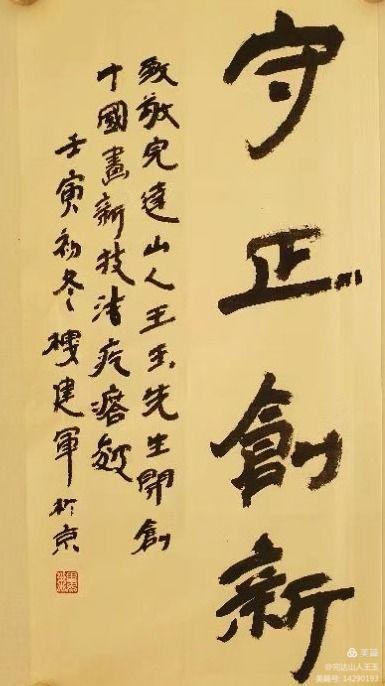 守正創新
致敬完達山人王玉先生開創
中國畫新技法疙瘩皴
壬寅初冬樓建軍於京
美篇
@完达山人王玉
美篇号: 14290193